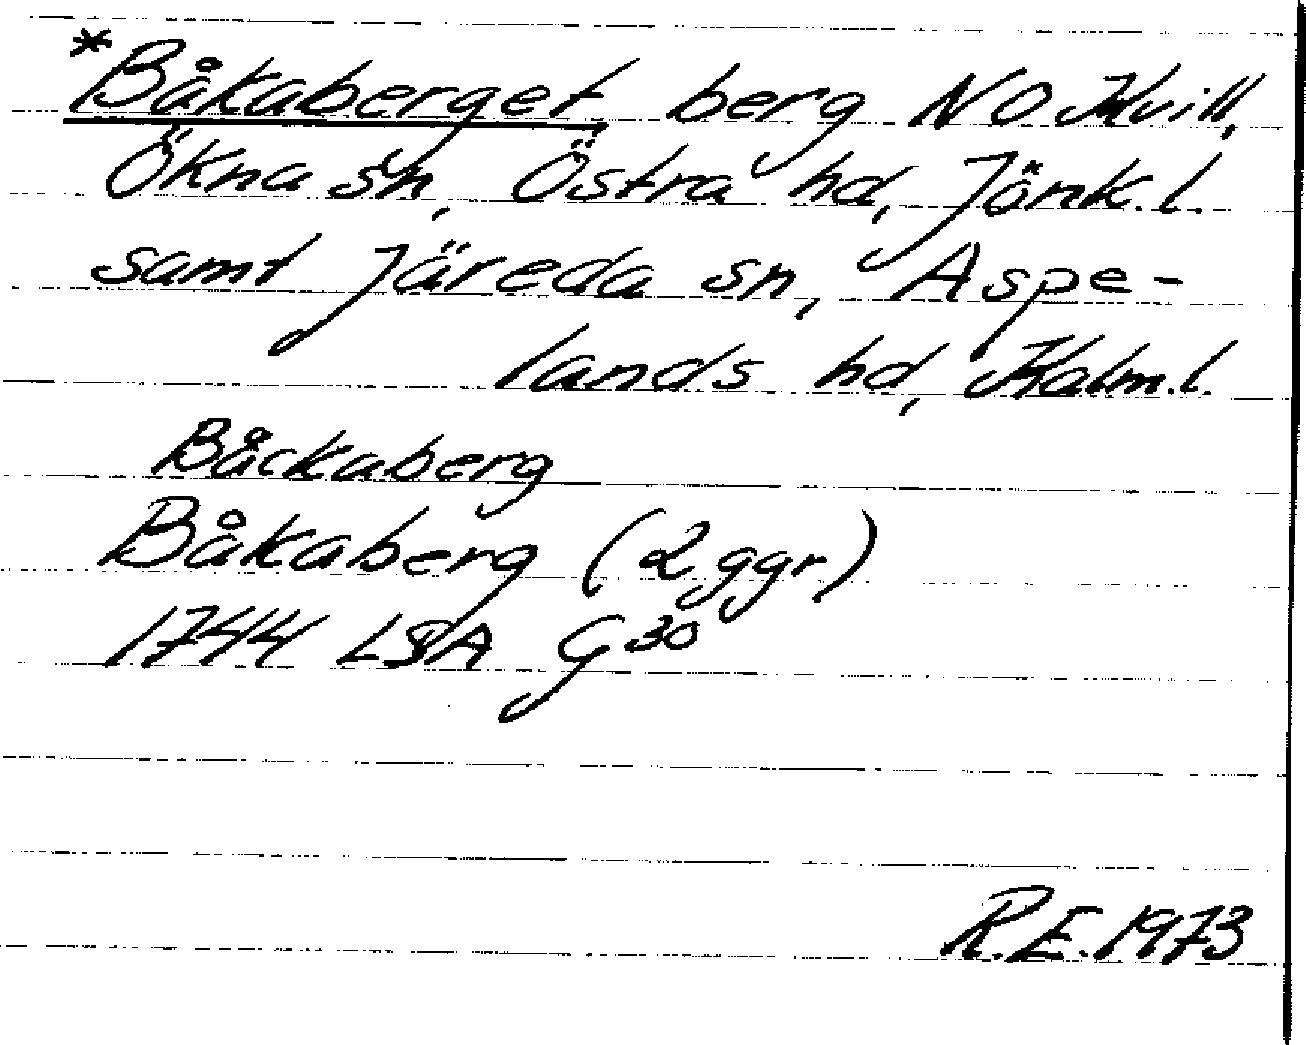 *Båkaberget, berg NO Kvill,
Ökna sn, Östra hd, Jönk.l.
samt Järeda sn, Aspe-
lands hd, Kalm.l.
Båckaberg
Båkaberg (2 ggr)
1744 LSA G30
R.E. 1973